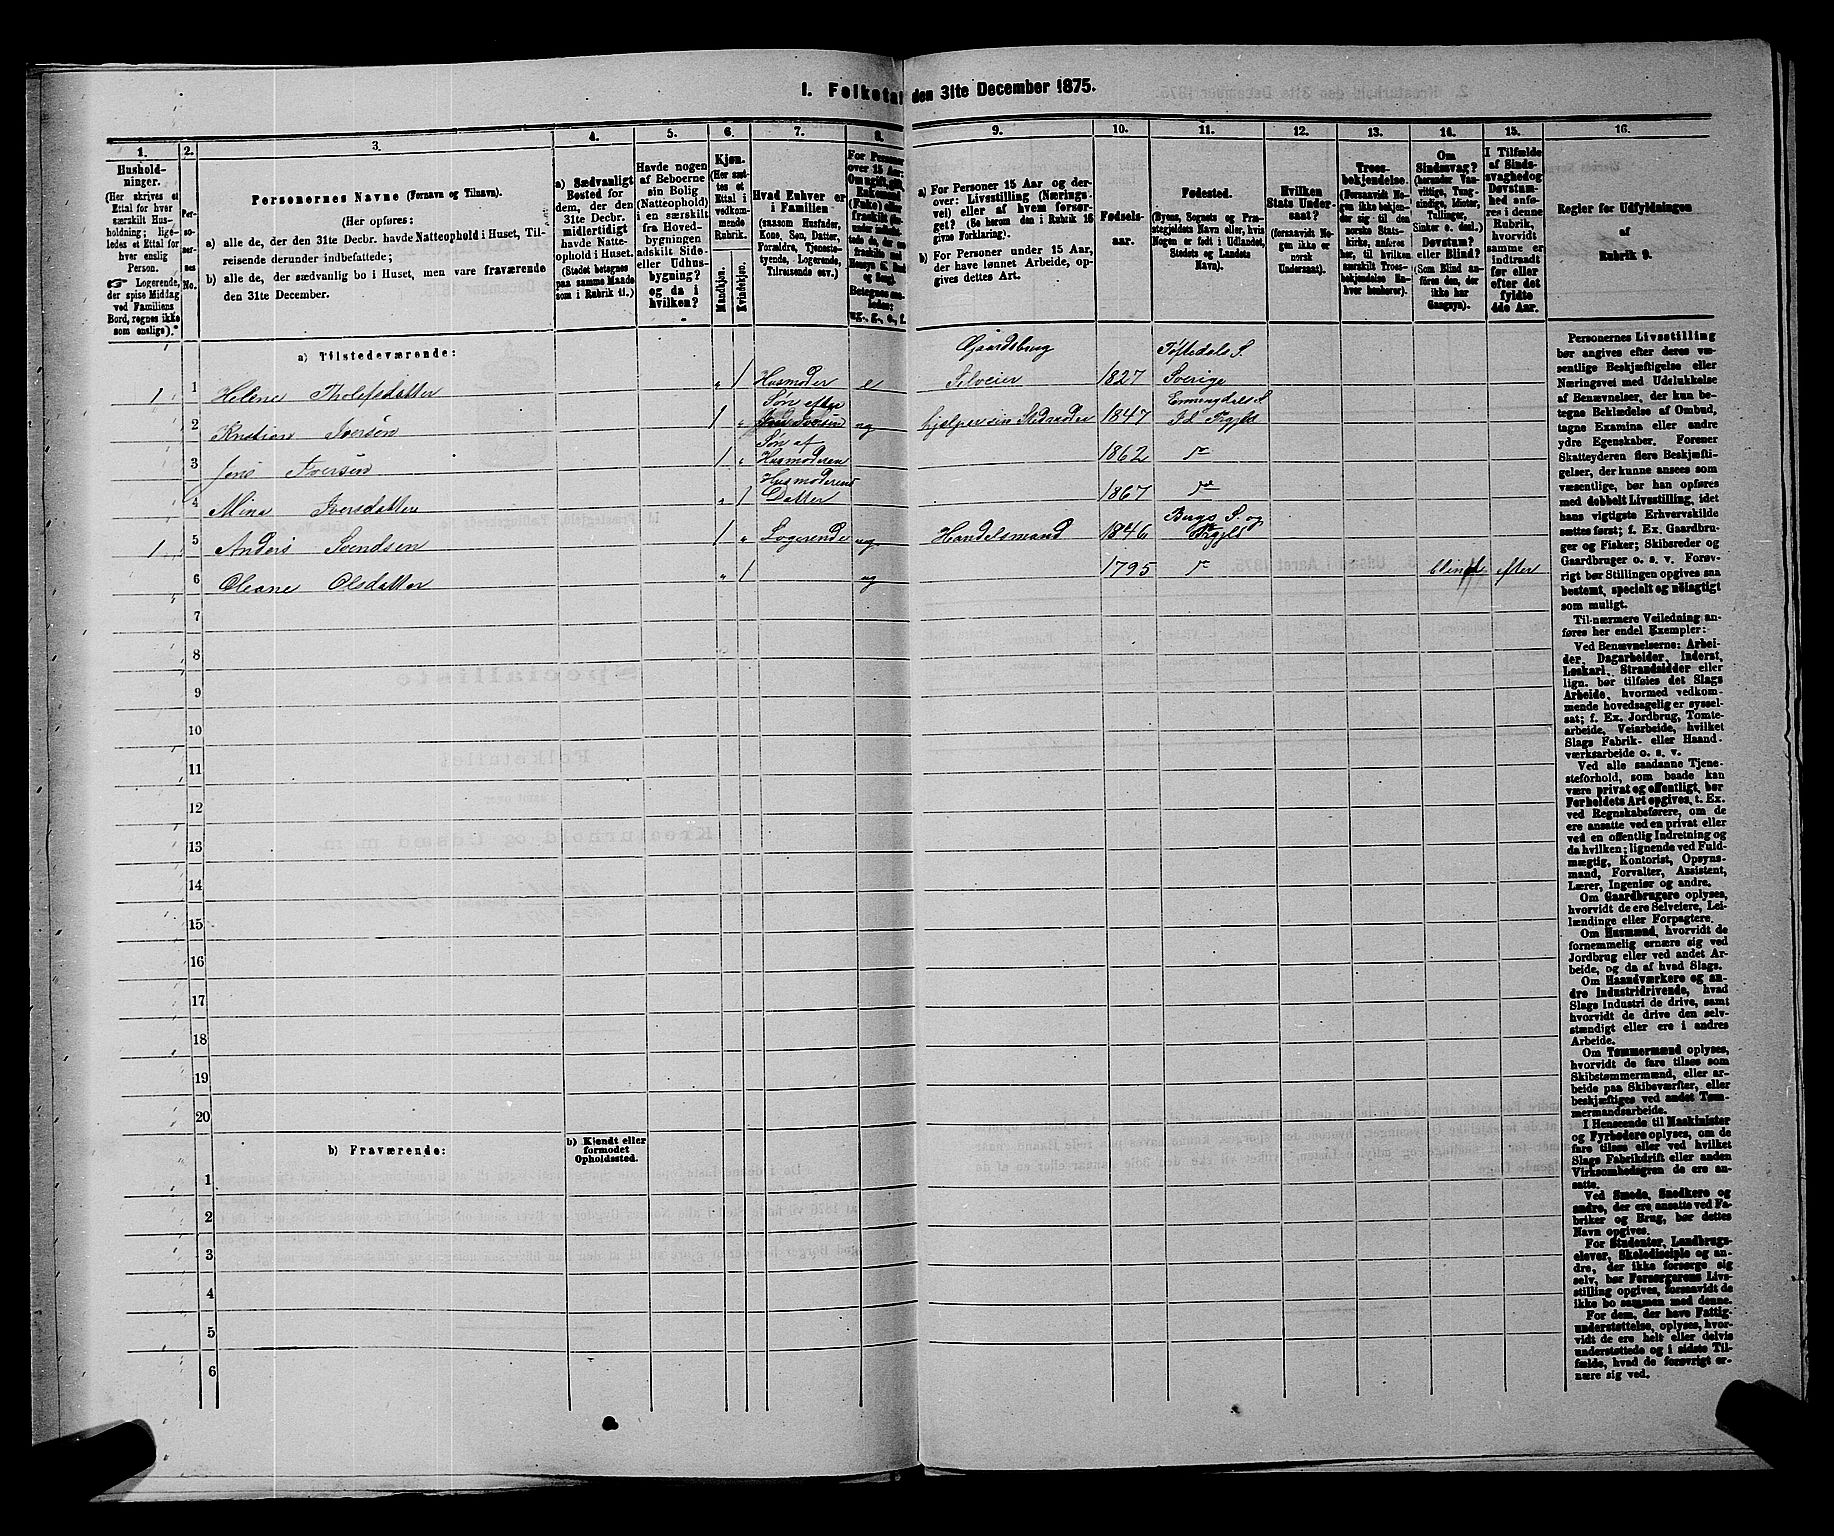 I. Folketal den 31te December 1875.
1. 2. 3. 4. 5. 6. 7. 8. 9. 10. 11. 12. 13. 14. 15. 16.
Husholdninger.
(Her skrives et
Ettal for hver
særskilt Husholdning; ligeledes
et Ettal for
hver enslig
Person.
☞ Logerende,
der spise Middag
ved Familiens
Bord, regnes ikke
som enslige).
Personernes No.
Personernes Navne (Fornavn og Tilnavn).
(Her opføres:
a) alle de, der den 31te Decbr. havde Natteophold i Huset, Tilreisende
derunder indbefattede;
b) alle de, der sædvanlig bo i Huset, men vare fraværende
den 31te December.
a) Sædvanligt
Bosted for
dem, der den
31te Decbr.
midlertidigt
havde Natteophold
i Huset.
(Stedet betegnes
paa samme Maade
som i Rubrik 11.)
Havde nogen
af Beboerne
sin Bolig
(Natteophold)
i en særskilt
fra Hovedbygningen
adskilt Side-
eller Udhusbygning?
og da i
hvilken?
Kjøn.
(Her sættes
et
Ettal i
vedkommende
Rubrik.
Mandkjøn.
Kvindekjøn.
Hvad Enhver er
i Familien
(saasom Husfader,
Kone, Søn, Datter,
Forældre, Tjenestetyende,
Logerende,
Tilreisende osv.)
For Personer
over 15 Aar:
a) For Personer 15 Aar og derover:
Livsstilling (Næringsvei)
eller af hvem forsørget?
(Se herom den i Rubrik 16
givne Forklaring).
b) For Personer under 15 Aar,
der have lønnet Arbeide, opgives
dettes Art.
Fødselsaar.
Fødested.
(Byens, Sognets og Præstegjeldets
Navn eller, hvis
Nogen er født i Udlandet,
Stedets og Landets
Navn).
Hvilken
Stats Undersaat?
(forsaavidt Nogen
ikke er
norsk
Undersaat).
Troesbekjendelse.
(Forsaavidt Nogen
ikke bekjender
sig til den
norske Statskirke,
anføres
her, til hvilken
særskilt Troesbekjendelse
Nahver
henhører).
Om
Sindssvag?
(herunder Vanvittige,
Tungsindige,
Idioter,
Tullinger,
Sinker o. desl.)
Døvstum?
eller Blind?
(Som Blind anføres
den, der
ikke har
Gangsyn).
I Tilfælde
af Sindssvaghed
og
Døvstumhed
anføres
i denne
Rubrik,
hvorvidt
samme er
indtraadt
før eller
efter det
fyldte
4de Aar.
Regler for Udfyldningen
af
Rubrik 9.
a) Tilstedeværende:
Gaardsbrug Töftedals S.
1 1 Helene Tholefsdatter " 1 Husmoder e Selveier 1827 Sverige
Søn efter Enningdals S.
2 Kristian Iversön 1 " ug hjælper sin Stedmoder 1847 Id Prgjld
Søn af
3 Jens Iversön 1 " Husmoderen 1862 do
Husmoderens
4 Mina Iversdatter " 1 Datter 1867 do
Bergs S. og
1 5 Anders Svendsen 1 " Logerende ug Handelsmand 1846 Prgjld
6 Oleane Olsdatter " 1 ug 1795 do blind efter
7
8
9
10
11
12
13
14
15
16
17
18
19
20
b) Fraværende:
b) Kjendt eller
formodet
Opholdssted.
1
2
3
4
5
6
Personernes Livsstilling
bør angives efter deres væsentlige
Beskjæftigelse eller
Næringsvei med Udelukkelse
af Benævnelser, der kun betegne
Beklædelse af Ombud,
tagne Examina eller andre
ydre Egenskaber. Forener
Skatteyderen flere Beskjæftigelser,
der kunne ansees som
væsentlige, bør han opføres
med dobbelt Livsstilling, idet
hans vigtigste Erhvervskilde
sættes først; f. Ex. Gaardbruger
og Fisker; Skibsreder og
Gaardbruger o. s. v. Forøvrigt
bør Stillingen opgives saa
bestemt, specielt og nøiagtigt
som muligt.
Til nærmere Veiledning anføres
her endel Exempler:
Ved Benævnelserne: Arbeider,
Dagarbeider, Inderst,
Løskarl, Strandsidder eller
lign. bør tilføies det Slags
Arbeide, hvormed vedkommende
hovedsagelig er sysselsat;
f. Ex. Jordbrug, Tomtearbeide,
Veiarbeide, hvilket
Slags Fabrik- eller Haandværksarbeide
o. s. v.
Ved alle saadanne Tjenesteforhold,
som baade kan
være privat og offentligt, bør
Forholdets Art opgives, t. Ex.
ved Regnskabsførere, om de
ere ansatte ved en privat eller
ved en offentlig Indretning og
da hvilken; lignende ved Fuldmægtig,
Kontorist, Opsynsmand,
Forvalter, Assistent,
Lærer, Ingeniør og andre.
Om Gaardbrugere oplyses,
hvorvidt de ere Selveiere, Leilændinge
eller Forpagtere.
Om Husmænd, hvorvidt de
fornemmelig ernære sig ved
Jordbrug eller ved andet Arbeide,
og da af hvad Slags.
Om Haandværkere og andre
Industridrivende, hvad
Slags Industri de drive, samt
hvorvidt de drive den selvstændigt
eller ere i andres
Arbeide.
Om Tømmermænd oplyses,
hvorvidt de fare tilsøs som
Skibstømmermænd, eller arbeide
paa Skibsværfter, eller
beskjæftiges ved andet Tømmermandsarbeide.
I Henseende til Maskinister
og Fyrbødere oplyses, om de
fare tilsøs eller ved hvilket
Slags Fabrikdrift eller anden
Virksomhedsgren de ere ansatte.
Ved Smede, Snedkere og
andre, der ere ansatte ved Fabriker
og Brug, bør dettes
Navn opgives.
For Studenter, Landbrugselever,
Skoledisciple og andre,
der ikke forsørge sig
selv, bør Forsørgerens Livsstilling
opgives, forsaavidt de
ikke bo sammen med denne.
For dem, der have Fattigunderstøttelse,
oplyses, hvorvidt
de ere helt eller delvis
understøttede og i sidste Tilfælde,
hvad de forøvrigt ernære
sig ved.